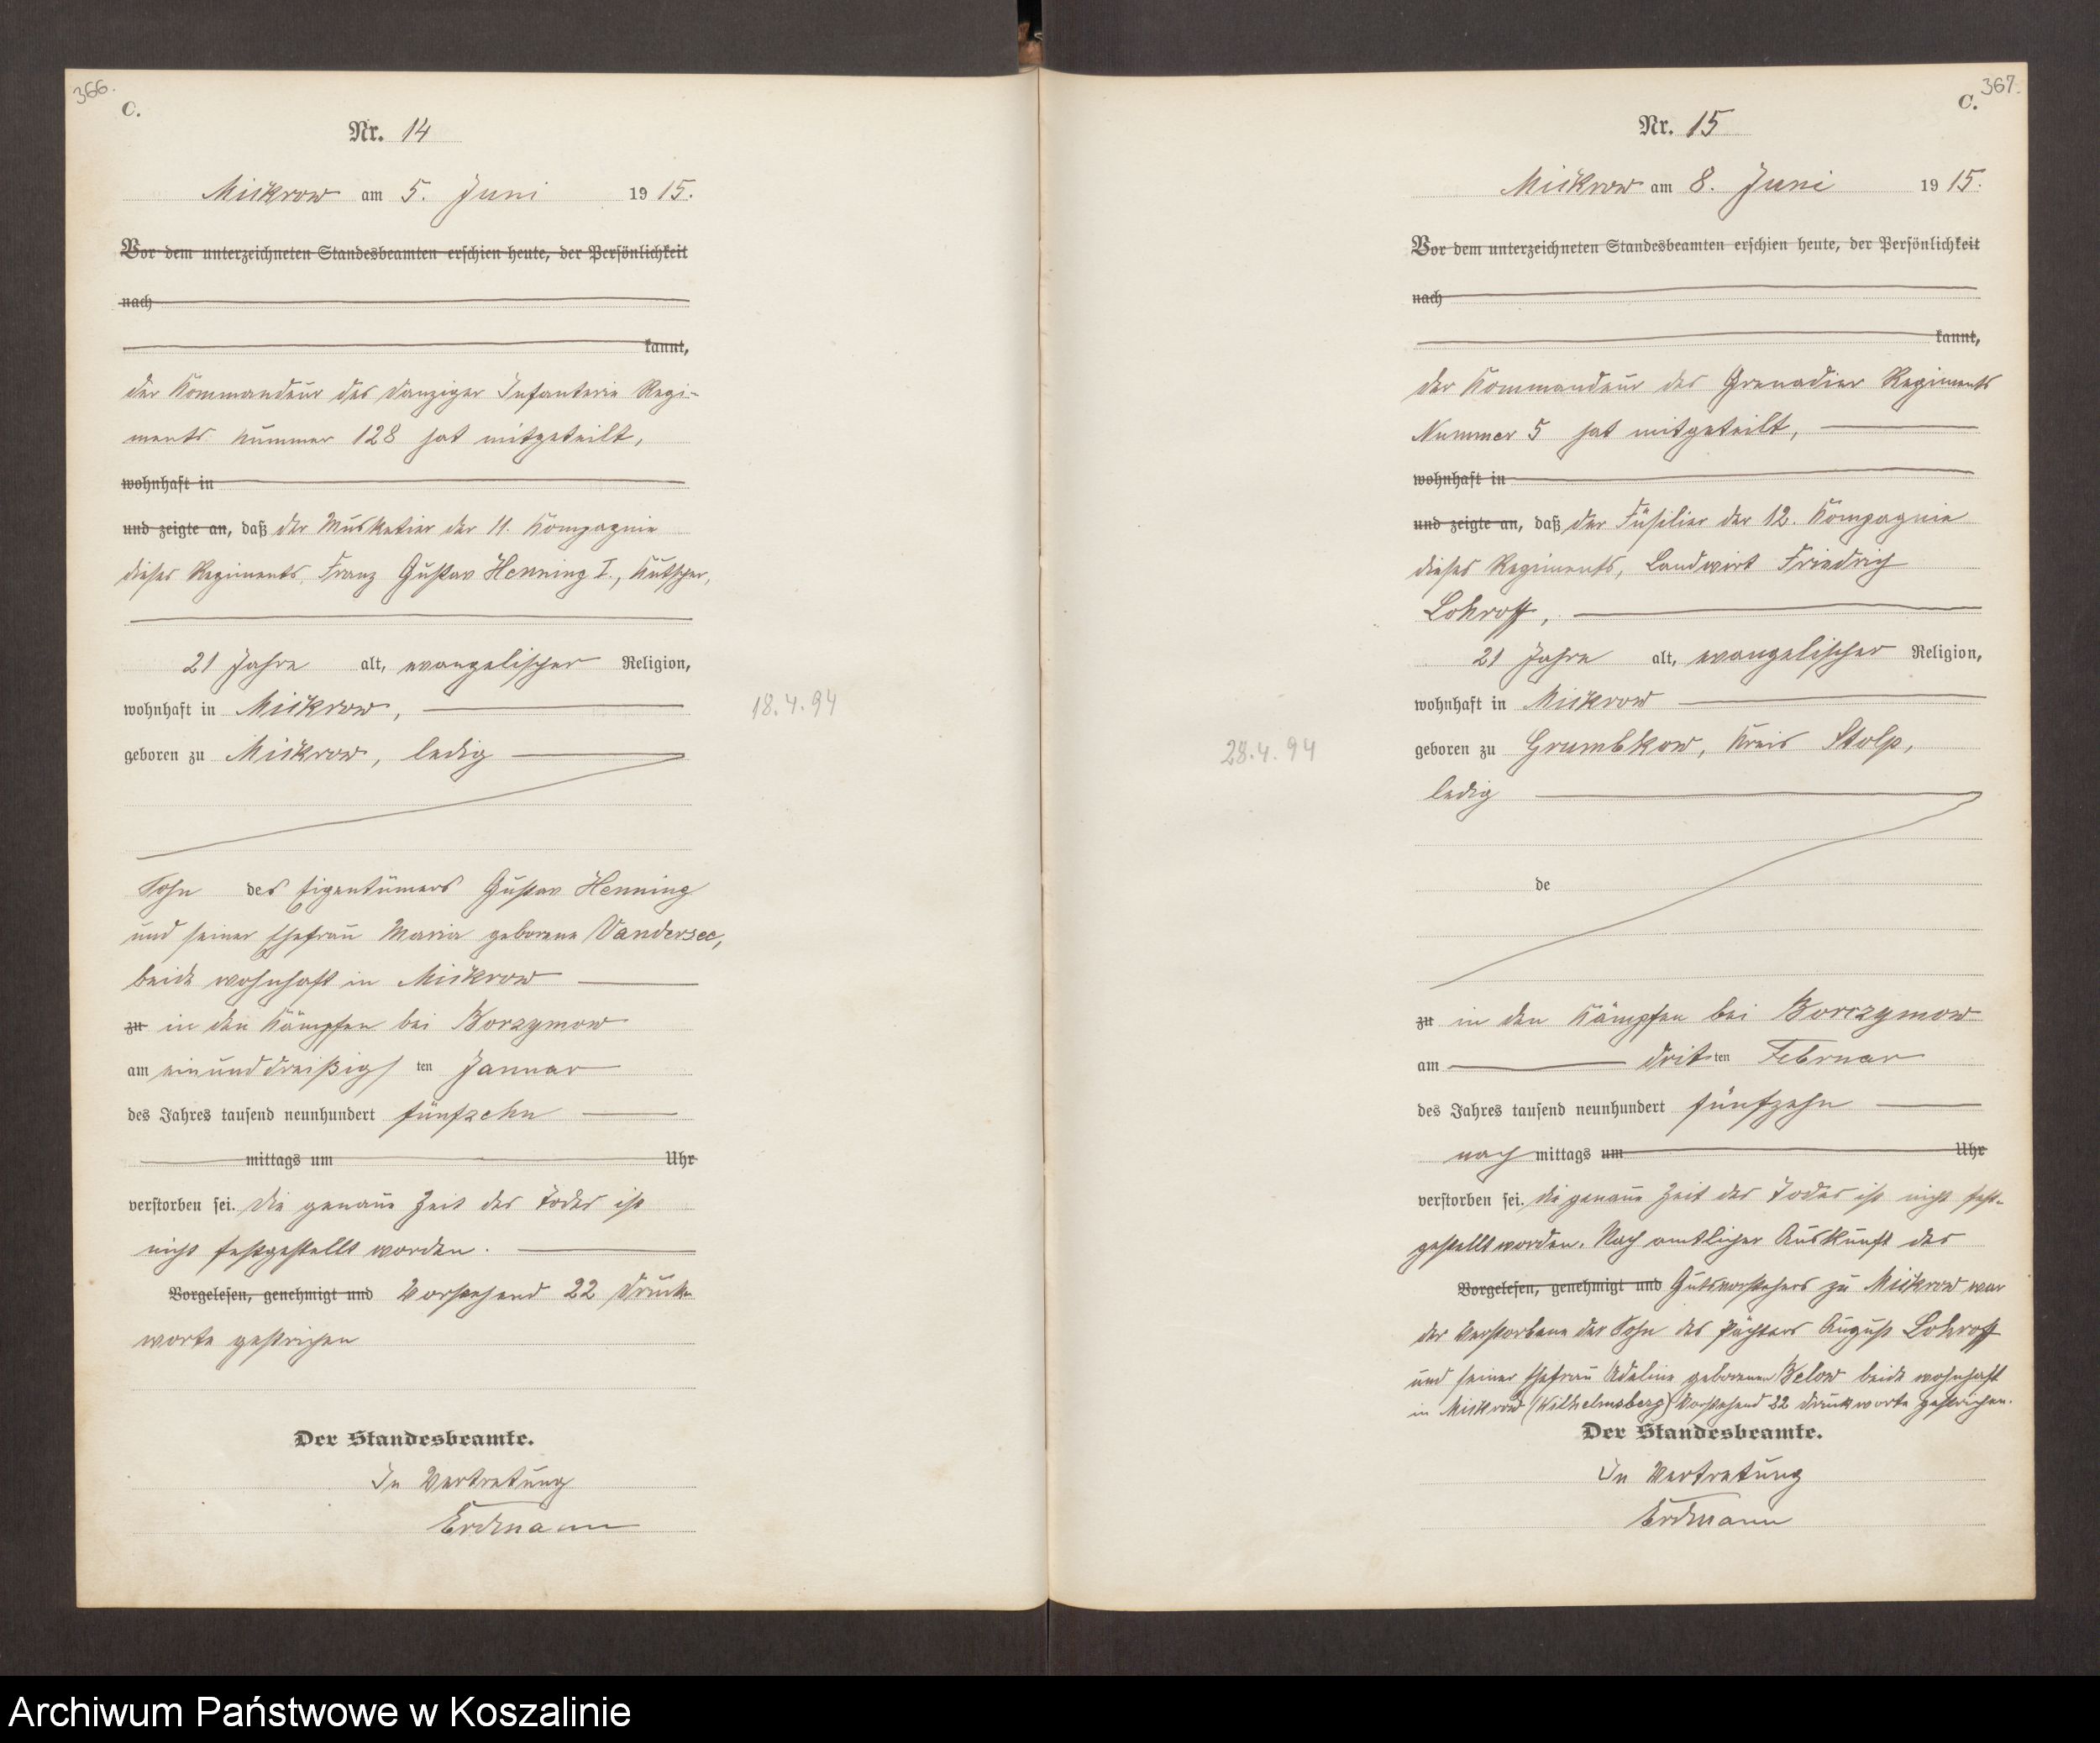 366.
C.
Nr. 14
Mickrow am 5. Juni 1915.
Vor dem unterzeichneten Standesbeamten erschien heute, der Persönlichkeit
nach
kannt,
der Kommandeur des Danziger Infanterie Regi-
ments Nummer 128 hat mitgeteilt,
wohnhaft in
und zeigte an, daß der Musketier der 11. Kompagnie
dieses Regiments, Franz Gustav Henning I., Kutscher,
21 Jahre alt, evangelischer Religion,
wohnhaft in Mickrow,
18.4.94
geboren zu Mickrow, ledig
Sohn des Eigentümers Gustav Henning
und seiner Ehefrau Maria geborene Vandersee,
beide wohnhaft in Mickrow
zu in den Kämpfen bei Borzymow
am einunddreißigsten Januar
des Jahres tausend neunhundert fünfzehn
mittags um Uhr
verstorben sei. Die genaue Zeit des Todes ist
nicht festgestellt worden.
Vorgelesen, genehmigt und Vorstehend 22 Druck
worte gestrichen
Der Standesbeamte.
In Vertretung
Erdmann
367.
C.
Nr. 15
Mickrow am 8. Juni 1915.
Vor dem unterzeichneten Standesbeamten erschien heute, der Persönlichkeit
nach
kannt,
der Kommandeur des Grenadier Regiments
Nummer 5 hat mitgeteilt,
wohnhaft in
und zeigte an, daß der Füsilier der 12. Kompagnie
dieses Regiments, Landwirt Friedrich
Lohroff,
21 Jahre alt, evangelischer Religion,
wohnhaft in Mickrow
28.4.94
geboren zu Grumbkow, Kreis Stolp,
ledig
de
zu in den Kämpfen bei Borczymow
am dritten Februar
des Jahres tausend neunhundert fünfzehn
nach mittags um Uhr
verstorben sei. Die genaue Zeit des Todes ist nicht fest-
gestellt worden. Nach amtlicher Auskunft des
Vorgelesen, genehmigt und Gutsvorstehers zu Mickrow war
der Verstorbene der Sohn des Pächters August Lohroff
und seiner Ehefrau Adeline geborenen Below beide wohnhaft
in Mickrow (Wilhelmsberg) Vorstehend 22 Druckworte gestrichen.
Der Standesbeamte.
In Vertretung
Erdmann
Archiwum Państwowe w Koszalinie